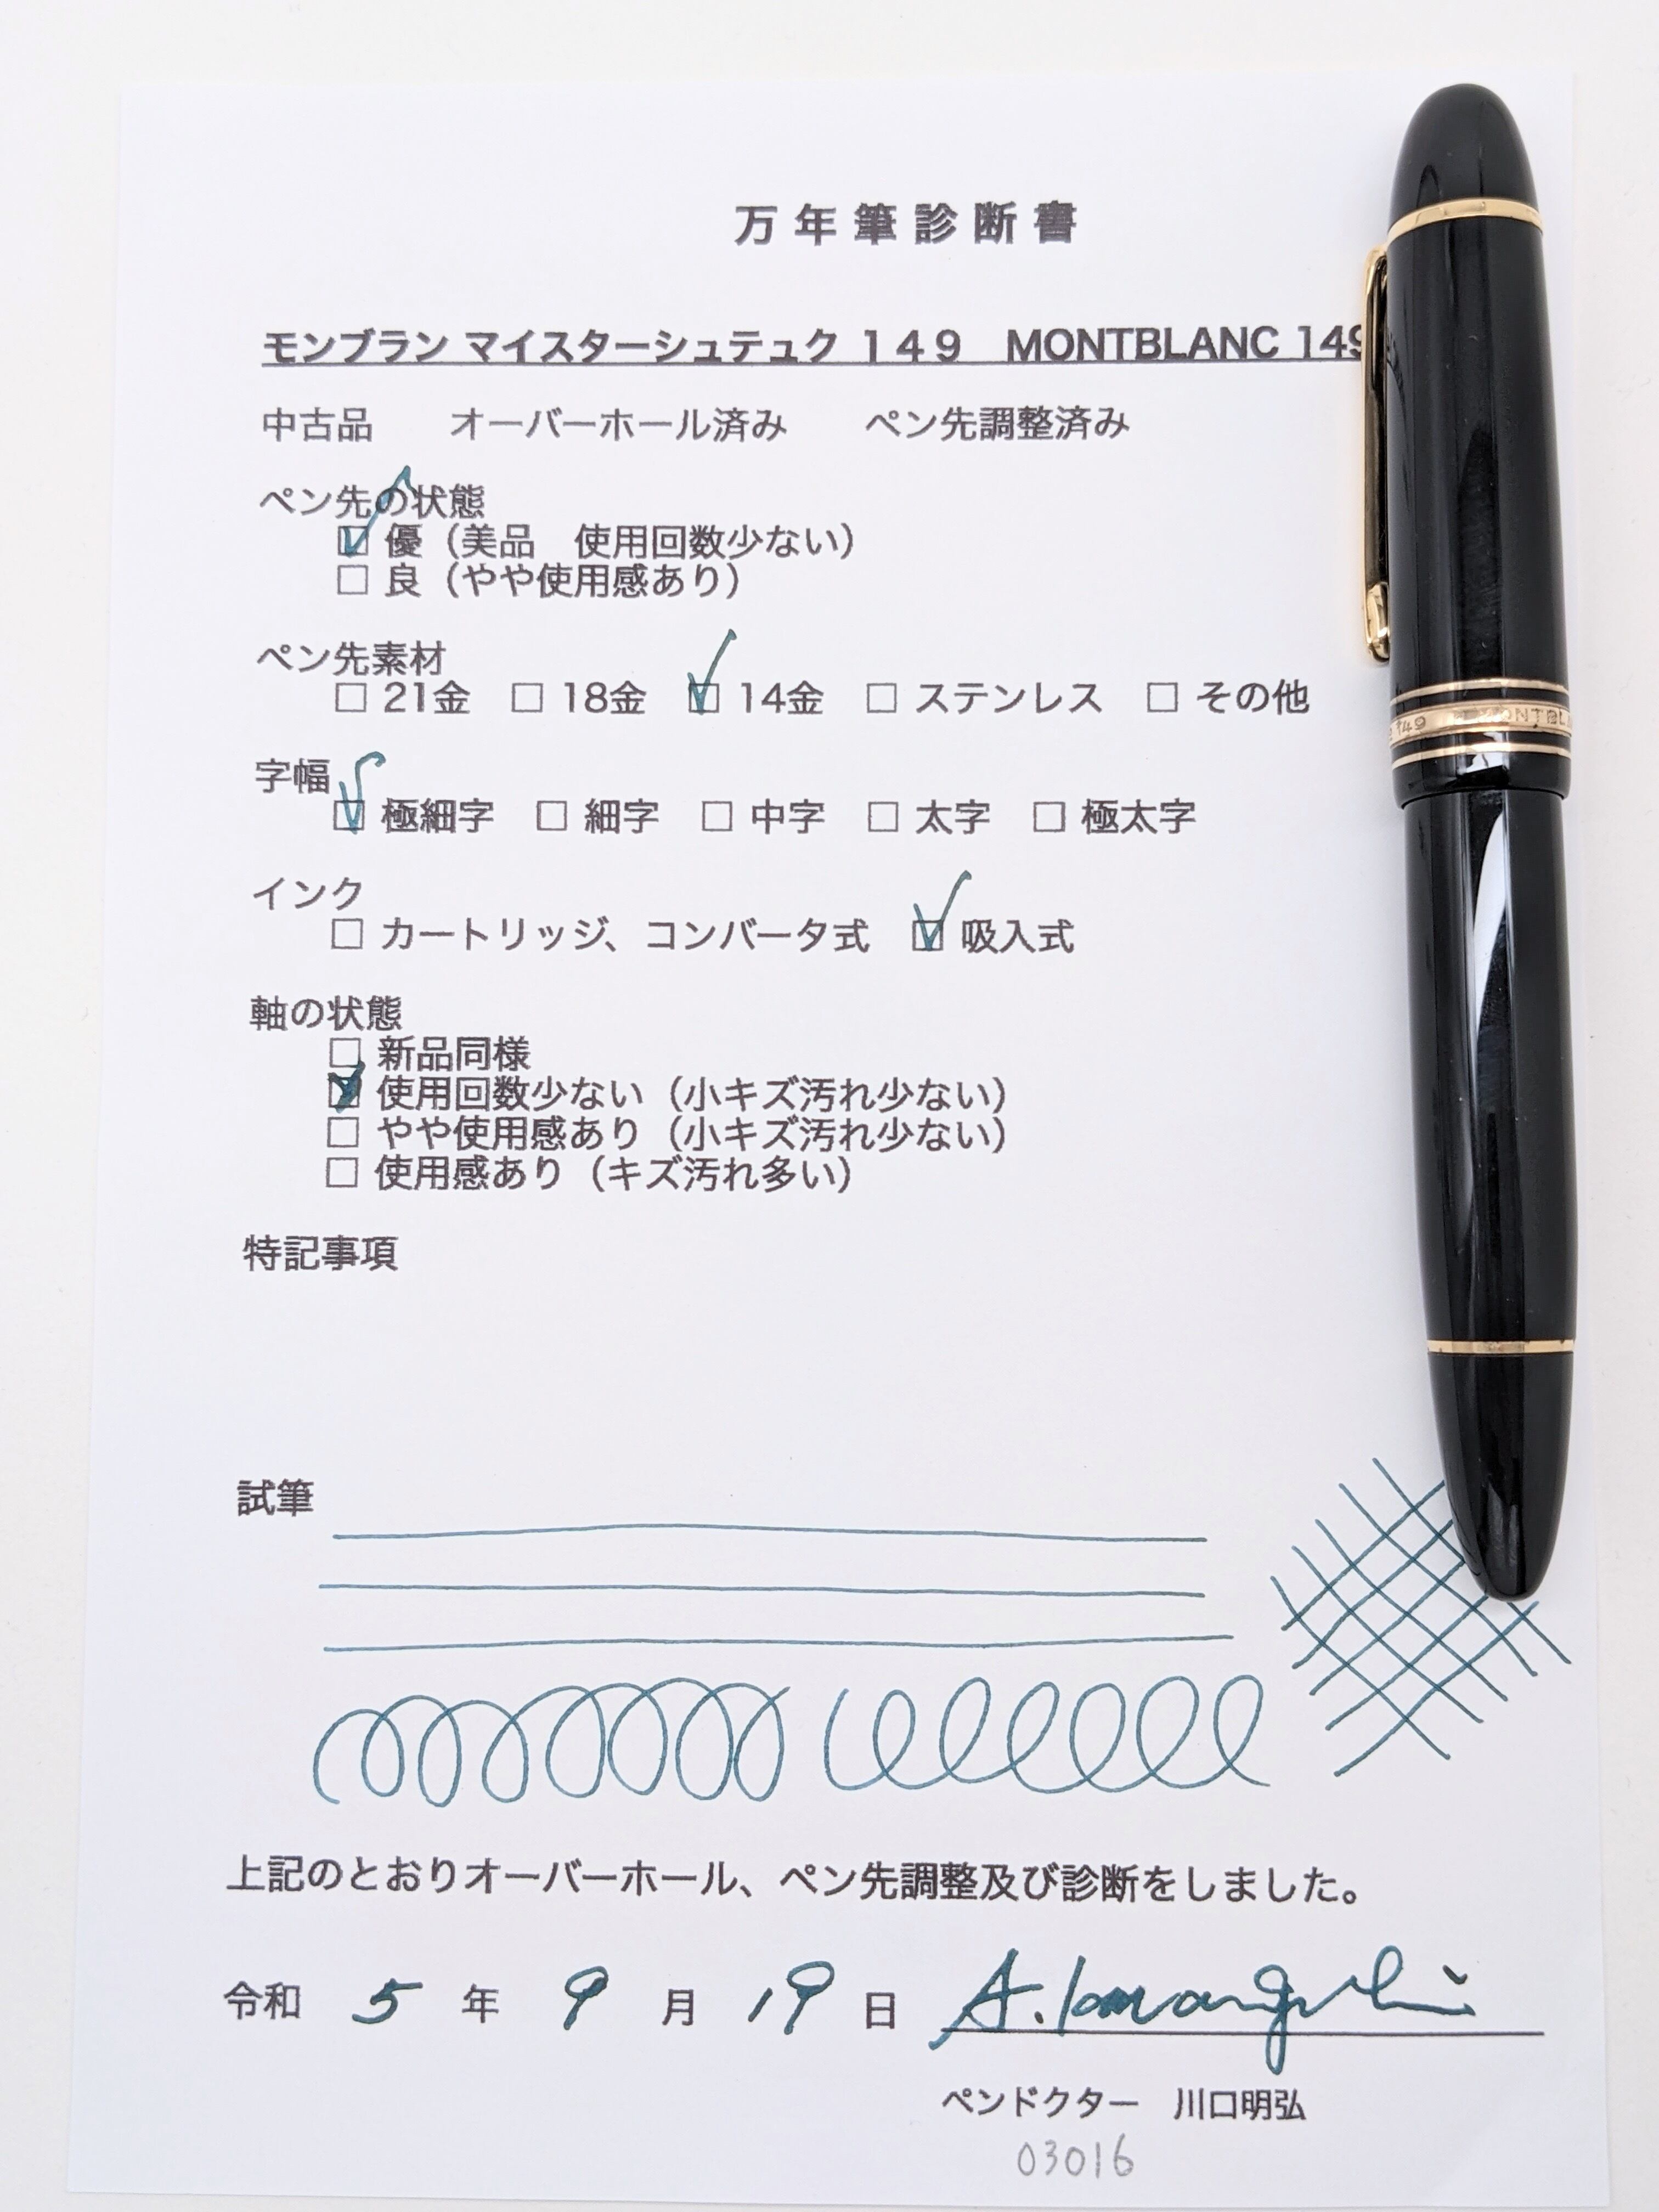 万年筆診断書
モンブラン マイスターシュテュク １４９　MONTBLANC 149
中古品　　オーバーホール済み　　ペン先調整済み
ペン先の状態
☑ 優（美品　使用回数少ない）
□ 良（やや使用感あり）
ペン先素材
□ 21金　□ 18金　☑ 14金　□ ステンレス　□ その他
字幅
☑ 極細字　□ 細字　□ 中字　□ 太字　□ 極太字
インク
□ カートリッジ、コンバータ式　☑ 吸入式
軸の状態
□ 新品同様
☑ 使用回数少ない（小キズ汚れ少ない）
□ やや使用感あり（小キズ汚れ少ない）
□ 使用感あり（キズ汚れ多い）
特記事項
試筆
上記のとおりオーバーホール、ペン先調整及び診断をしました。
令和　5　年　9　月　19　日　A. Kawaguchi
ペンドクター　川口明弘
03016
149 MONTBLA